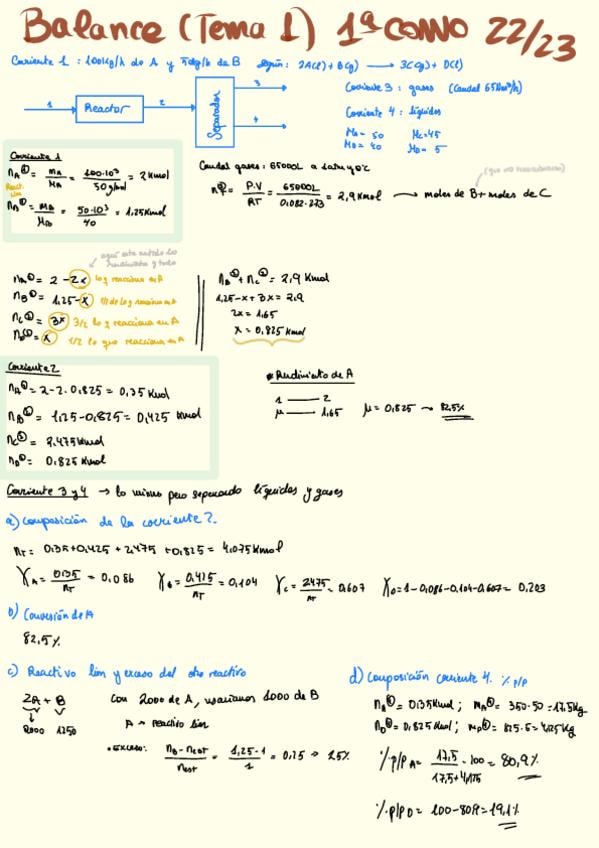 Balance (Tema 1) 1ª convo 22/23
Corriente 1: 100kg/h de A y 50kg/h de B según: 2A(l) + B(g) → 3C(g) + D(l)
1 Reactor 2 Separador 3 4
Corriente 3: gases (Caudal 65Nm³/h)
Corriente 4: líquidos
MA = 50 MC = 45
MB = 40 MD = 5
Corriente 1
nA① = mA/MA = 100·10³/50g/mol = 2 Kmol
React. lim
nB① = mB/MB = 50·10³/40 = 1,25 Kmol
Caudal gases: 65000L a 1atm y 0ºC
n = P·V/RT = 65000L/0.082·273 = 2,9 Kmol → moles de B + moles de C
(que no reaccionaron)
nA② = 2 - 2x lo q reacciona en A
nB② = 1,25 - x 1/2 de lo q reacciona en A
nC② = 3x 3/2 lo q reacciona en A
nD② = x 1/2 lo que reacciona en A
nB② + nC② = 2,9 Kmol
1,25 - x + 3x = 2,9
2x = 1,65
x = 0,825 Kmol
Corriente 2
nA② = 2 - 2·0,825 = 0,35 Kmol
nB② = 1,25 - 0,825 = 0,425 Kmol
nC② = 2,475 Kmol
nD② = 0,825 Kmol
Rendimiento de A
1 — 2
μ — 1,65 μ = 0,825 → 82,5%
Corriente 3 y 4 → lo mismo pero separando líquidos y gases
a) Composición de la corriente 2.
nT = 0,35 + 0,425 + 2,475 + 0,825 = 4.075 Kmol
XA = 0,35/nT = 0,086 XB = 0,425/nT = 0,104 XC = 2,475/nT = 0,607 XD = 1 - 0,086 - 0,104 - 0,607 = 0,203
b) Conversión de A
82,5%
c) Reactivo lim y exceso del otro reactivo
2A + B
2000 1250
Con 2000 de A, usaríamos 1000 de B
A → reactivo lim
• EXCESO: nB - nest/nest = 1,25 - 1/1 = 0,25 → 25%
d) Composición corriente 4. % p/p
nA④ = 0,35 Kmol; mA④ = 350·50 = 17,5 Kg
nD④ = 0,825 Kmol; mD④ = 825·5 = 4,125 Kg
% p/p A = 17,5/17,5 + 4,125 · 100 = 80,9%
% p/p D = 100 - 80,9 = 19,1%